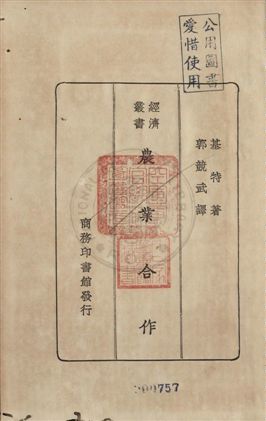 公用圖書
愛惜使用
基特著
郭競武譯
經濟
叢書
農業合作
商務印書館發行
200757